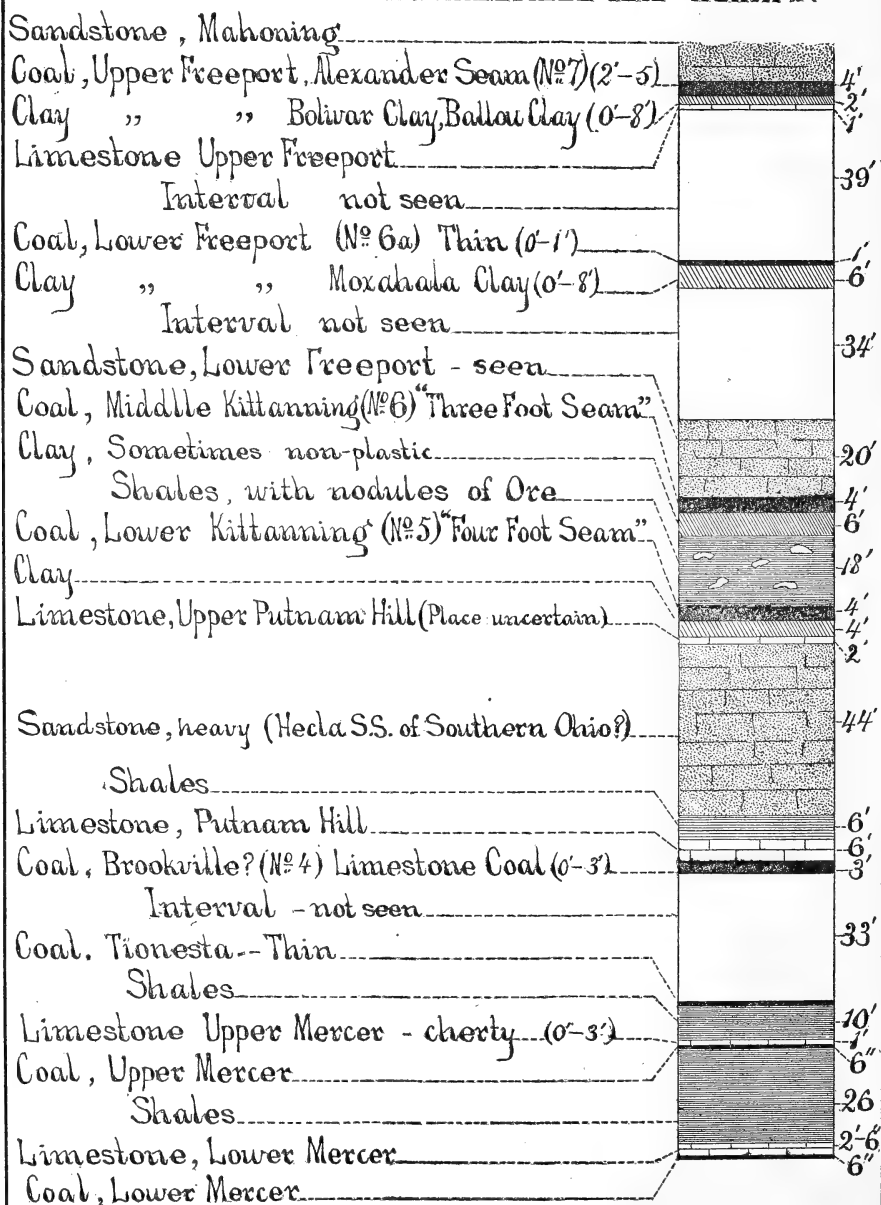 Sandstone, Mahoning
Coal, Upper Freeport, Alexander Seam (No 7) (2'-5)
4'
Clay " " Bolivar Clay, Ballou Clay (0'-8')
2'
1'
Limestone Upper Freeport
39'
Interval not seen
Coal, Lower Freeport (No 6a) Thin (0'-1')
1'
Clay " " Moxahala Clay (0'-8')
6'
Interval not seen
34'
Sandstone, Lower Freeport - seen
Coal, Middlle Kittanning (No 6) "Three Foot Seam"
Clay, Sometimes non-plastic
20'
Shales, with nodules of Ore
4'
Coal, Lower Kittanning (No 5) "Four Foot Seam"
6'
Clay
18'
Limestone, Upper Putnam Hill (Place uncertain)
4'
4'
2'
Sandstone, heavy (Hecla S.S. of Southern Ohio?)
44'
Shales
Limestone, Putnam Hill
6'
6'
Coal, Brookville? (No 4) Limestone Coal (0'-3')
3'
Interval - not seen
33'
Coal. Tionesta -- Thin
Shales
10'
Limestone Upper Mercer - cherty (0'-3')
1'
Coal, Upper Mercer
6"
Shales
26
Limestone, Lower Mercer
2'-6
6"
Coal, Lower Mercer